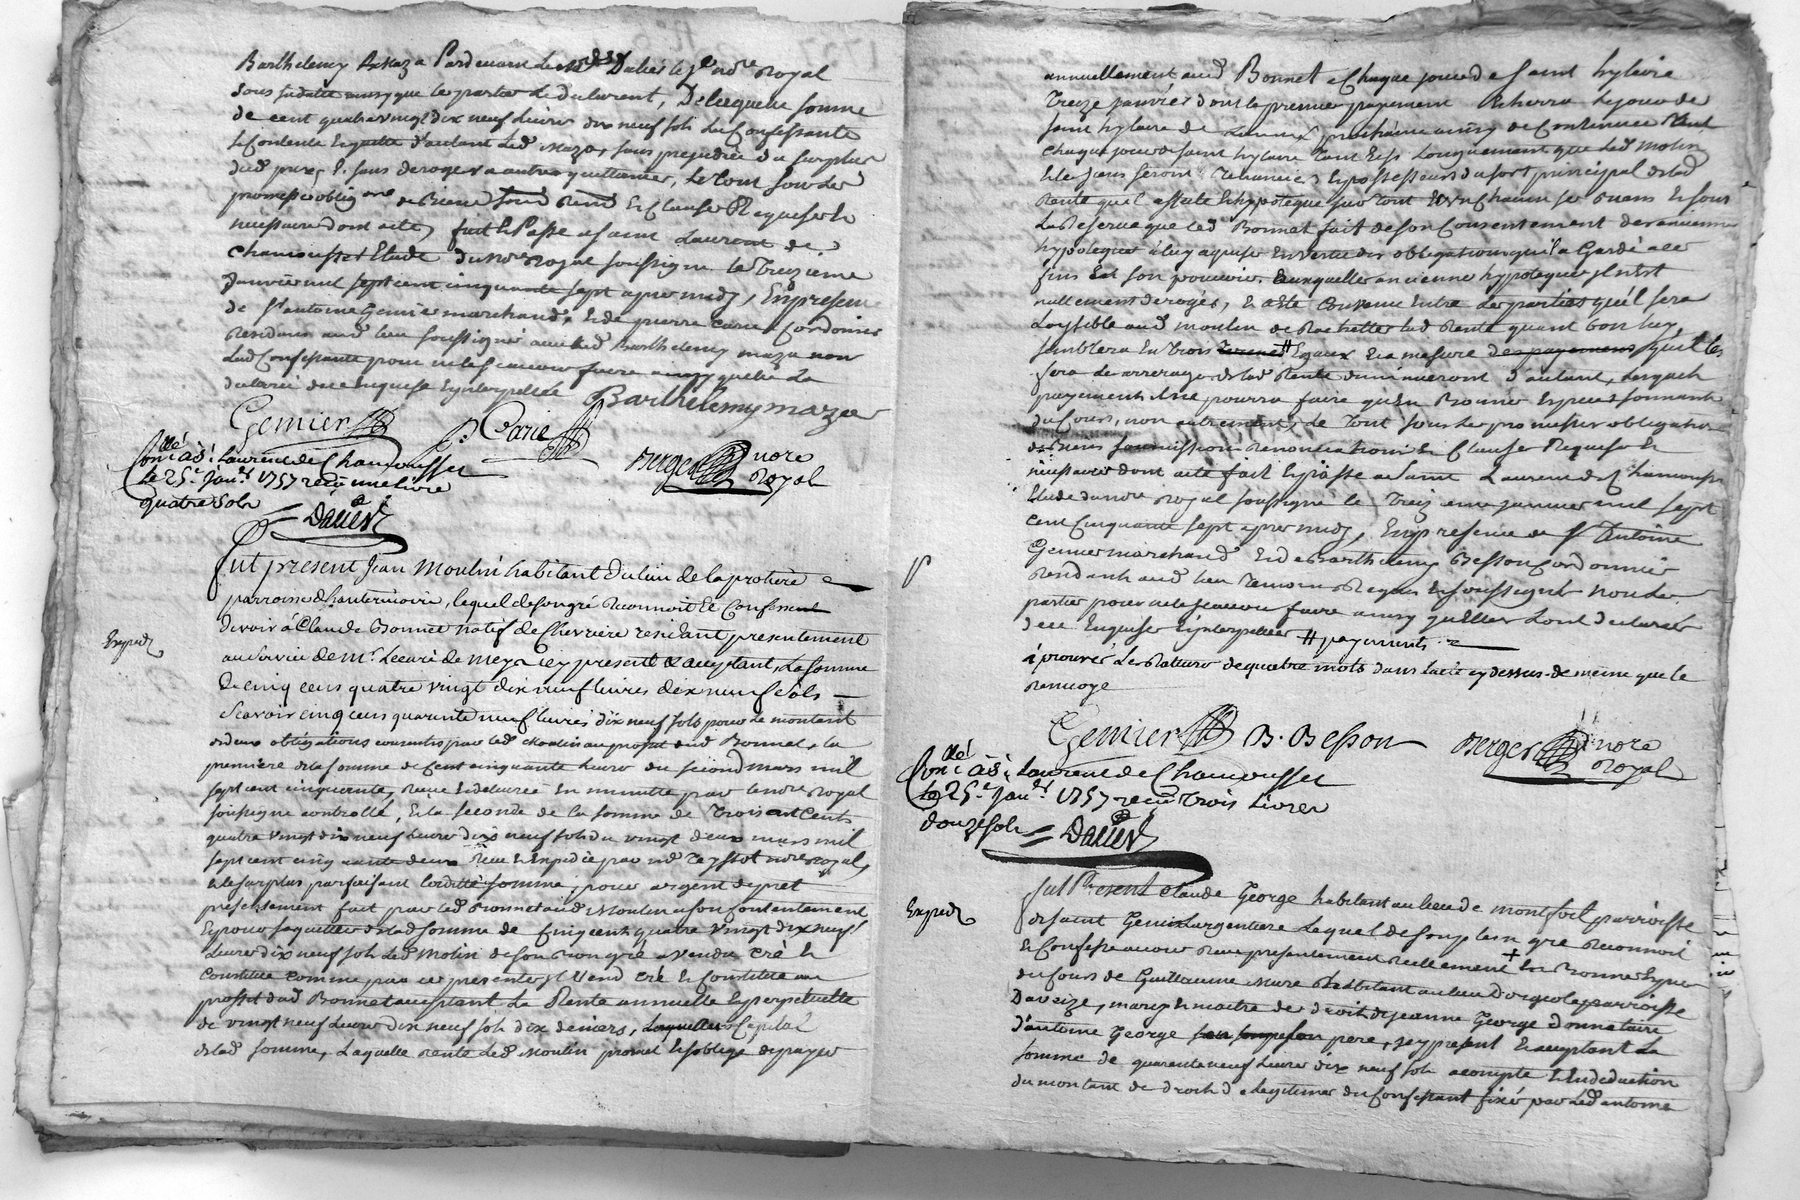 Barthelemy Maza Pardevant Le Dalier le Je nore Royal
sous sadatte ainsy que les parties Le declarent, De laquelle somme
de cent quatrevingt dix neuf Livres dix neuf sols La Confessante
se Contente Enquitte d'autant Led Maza, sans prejudice du surplus
dud prix, E sans deroger a autres quittances, Le tout sous les
promesses oblig.ons de Biens Soum Renon Et Clauses Requises Et
necessaires dont acte, fait Et Passé a saint Laurent de
Chamousset Etude du nore Royal soussigné Le Treizieme
Janvier mil sept cent cinquante sept apres midy, En presence
de Sr antoine Gemier marchand, Et de pierre Carie Cordonier
Residants aud lieu soussignés avec led Barthelemy maza non
Lad Confessante pour ne le scavoir faire ainsy quelle La
declaré de ce Enquise Et interpellée Barthelemy maza
Gemier P. Carie
Berger nore Royal
Conlé à St Laurent de Chamousset
Le 25e Janer 1757 reçu une livre
quatre sols
Dalier
Fut present Jean Moulin habitant du lieu de la protiere
parroisse d'hauterivoire, lequel de son gré Reconnoit Et Confesse
devoir à Claude Bonnet natif de Chevriere residant presentement
au service de Mr. Le curé de meys icy present & acceptant, La somme
de cinq cens quatre vingt dix neuf livres dix neuf sols
Scavoir cinq cens quarante neuf livres dix neuf sols pour le montant
de deux obligations consenties par led Moulin au proffit dud Bonnet, la
premiere de la somme de Cent cinquante Livres du second mars mil
sept cent cinquante, Recue Et delivrée En minutte par le nore Royal
soussigné controllé, Et la seconde de la somme de Trois cent Cents
quatre vingt dix neuf Livres dix neuf sols du vingt deux mars mil
sept cent cinq uante deux Recue Et Expediée par Me Teyssot nore Royal,
Et le surplus parfaisant laditte somme, pour argent de pret
presentement fait par led Bonnet aud Moulin a son Contentement
Et pour laquelle ditte somme de Cinq cent quatre Vingt dix neuf
Livres dix neuf sols Led Molin de son Bon gré a Vendu Cré Et
Constitué comme par ces presentes il Vend Cré Et Constitue au
proffit dud Bonnet acceptant La Rente annuelle Et perpetuelle
de vingt neuf Livres dix neuf sols dix deniers, Capital
de lad somme, Laquelle rente Led Moulin promet Et s'oblige de payer
Expedé
annuellement aud Bonnet a Chaque jour de saint hylaire
Treize janvier dont le premier payement Echerra Le jour de
saint hylaire de prochaine ainsy de Continuer
chaque jour de saint hylaire Tant Et si Longuement que Led Molin
Et les siens seront Et possesseurs du sort principal de lad
Rente qu'il affecte Et hypoteque sur tout Et Un Chacun ses Biens Et sous
La Reserve que led Bonnet fait de son Consentement des anciennes
hypoteques à luy aquises En vertu des obligations qu'il a Gardé a ces
fins En son pouvoir, Auxquelles anciennes hypoteques il n'est
nullement derogé, Et a eté Convenu Entre Les parties qu'il sera
Loysible aud moulin de Rachetter lad Rente quant bon luy
semblera En trois # Egaux Et a mesure des payemens qu'il les
fera Les arrerages de lad Rente diminueront d'autant, Lesquels
payements il ne pourra faire qu'En Bonnes Especes sonnantes
du Cours, non autrement, Le Tout sous Les promesses obligations
de Biens soumissions Renonciations Et Clauses Requises Et
necessaires dont acte fait Et passé a saint Laurent de Chamousset
Etude du nore Royal soussigné le Treizieme janvier mil sept
cent Cinquante sept apres midy, En presence de Sr Antoine
Gemier marchand Et de Barthelemy Besson Cordonnier
Residants aud lieu Temoins Requis Et soussignés non Les
parties pour ne le scavoir faire ainsy qu'Elles L'ont declaré
de ce Enquises Et interpellées # payements
aprouvés Les Ratures de quatre mots dans l'acte cy dessus de meme que le
Renvoye
Gemier B. Besson Berger nore Royal
Conlé à St Laurent de Chamousset
Le 25e Janer 1757 reçu trois Livres
douze sols Dalier
Expedé
fut Present Claude George habitant au lieu de montfort parroisse
de saint Genis Largentiere Lequel de son plein gré Reconnoit
Et Confesse avoir Receu presentement Reellement + En Bonnes Especes
du Cours de Guillaume Mure habitant au lieu d'orgeole parroisse
Daveize, mary Et maitre des droits de jeanne George donnataire
d'antoine George son pere, icy present Et acceptant La
somme de quarante neuf Livres dix neuf sols a compte Et En deduction
du montant des droits de Legitimes du Confessant fixés par led antoine